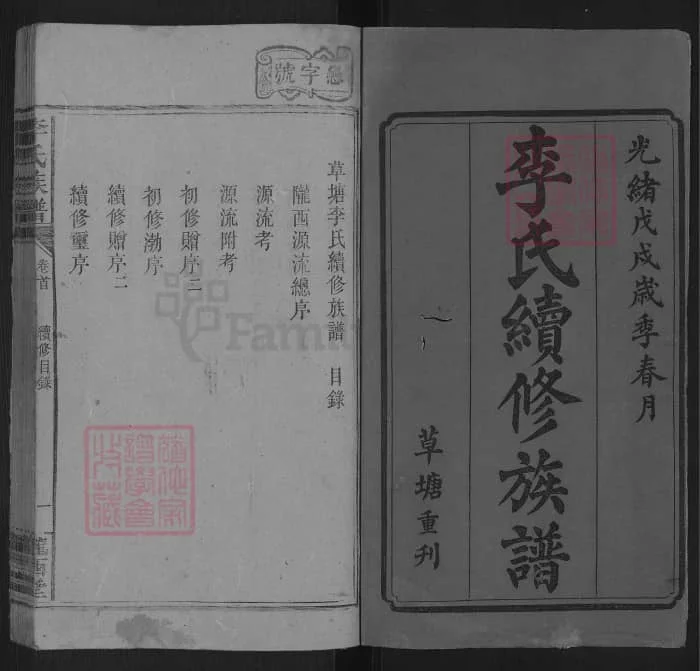 光緒戊戌歲季春月
李氏續修族譜
草塘重刋
字號
草塘李氏續修族譜 目錄
隴西源流總序
源流考
源流附考
初修贈序二
初修渤序
續修贈序二
續修璽序
李氏族譜
卷首
續修目錄
一